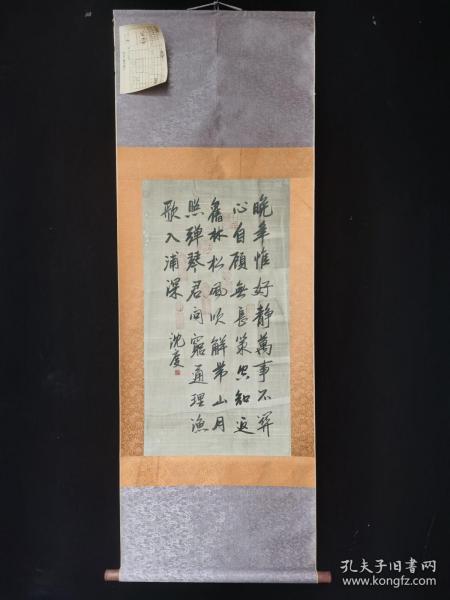 晚年惟好靜萬事不關
心自顧無長策空知返
舊林松風吹解帶山月
照彈琴君問窮通理漁
歌入浦深
沈度
孔夫子旧书网
www.kongfz.com